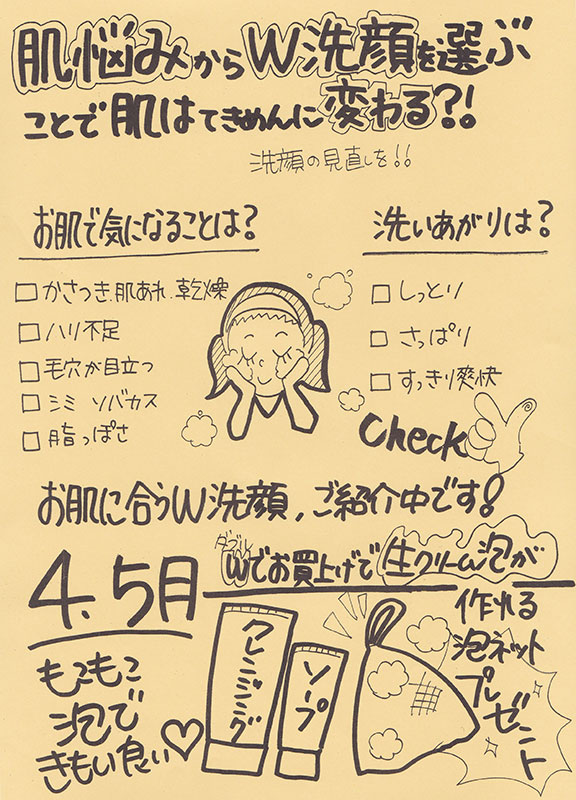 肌悩みからW洗顔を選ぶ
ことで肌はてきめんに変わる?!
洗顔の見直しを!!
お肌で気になることは?
□かさつき.肌あれ.乾燥
□ハリ不足
□毛穴が目立つ
□シミ ソバカス
□脂っぽさ
洗いあがりは?
□しっとり
□さっぱり
□すっきり爽快
Check
お肌に合うW洗顔,ご紹介中です!
4.5月
ダブル
Wでお買上げで生クリーム泡が
作れる
泡ネット
プレゼント
クレンジング
ソープ
もこもこ
泡で
きもい良い♡